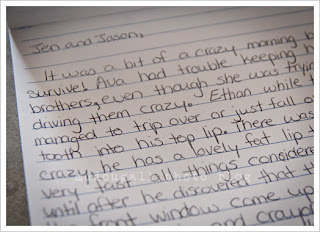 Jen and Jason,
It was a bit of a crazy morning b
survive! Ava had trouble keeping h
brothers, even though she was tryin
driving them crazy. Ethan while
managed to trip over or just fall o
tooth into his top lip. There was
crazy, he has a lovely fat lip t
very fast all things considere
until after he discovered that t
front window come up